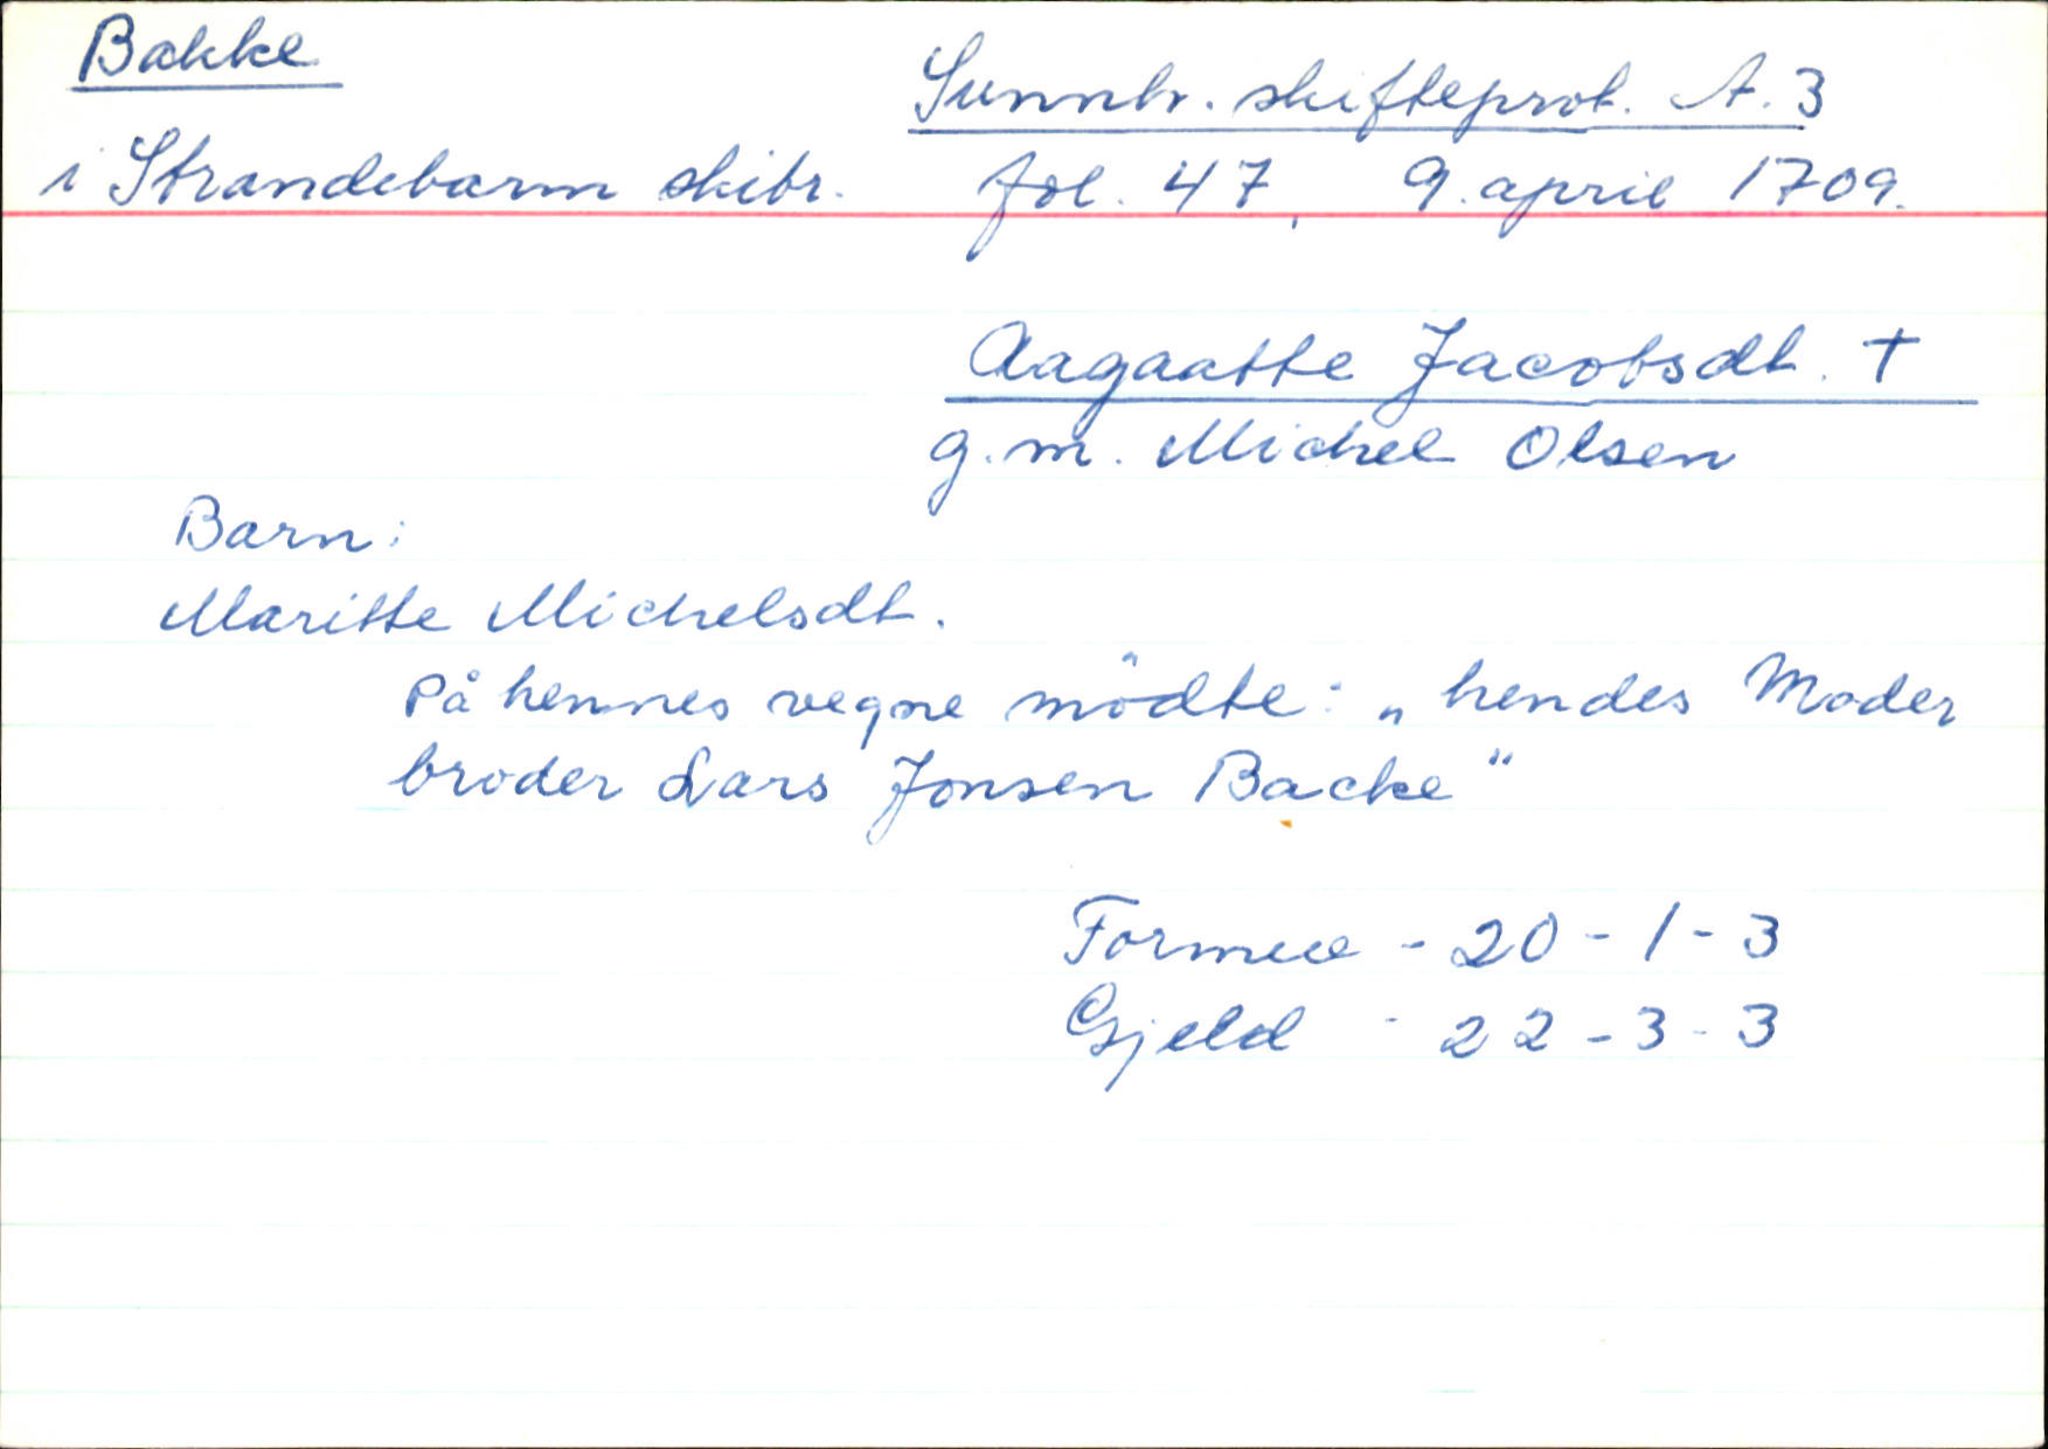 Bakke
Sunnhr. skifteprot. A. 3
i Strandebarm skibr. fol. 47, 9. april 1709.
Aagaatte Jacobsdt. †
g.m. Michel Olsen
Barn:
Maritte Michelsdt.
På hennes vegne mödte: „hendes Moder
broder Lars Jonsen Backe"
Formue - 20 - 1 - 3
Gjeld - 22 - 3 - 3